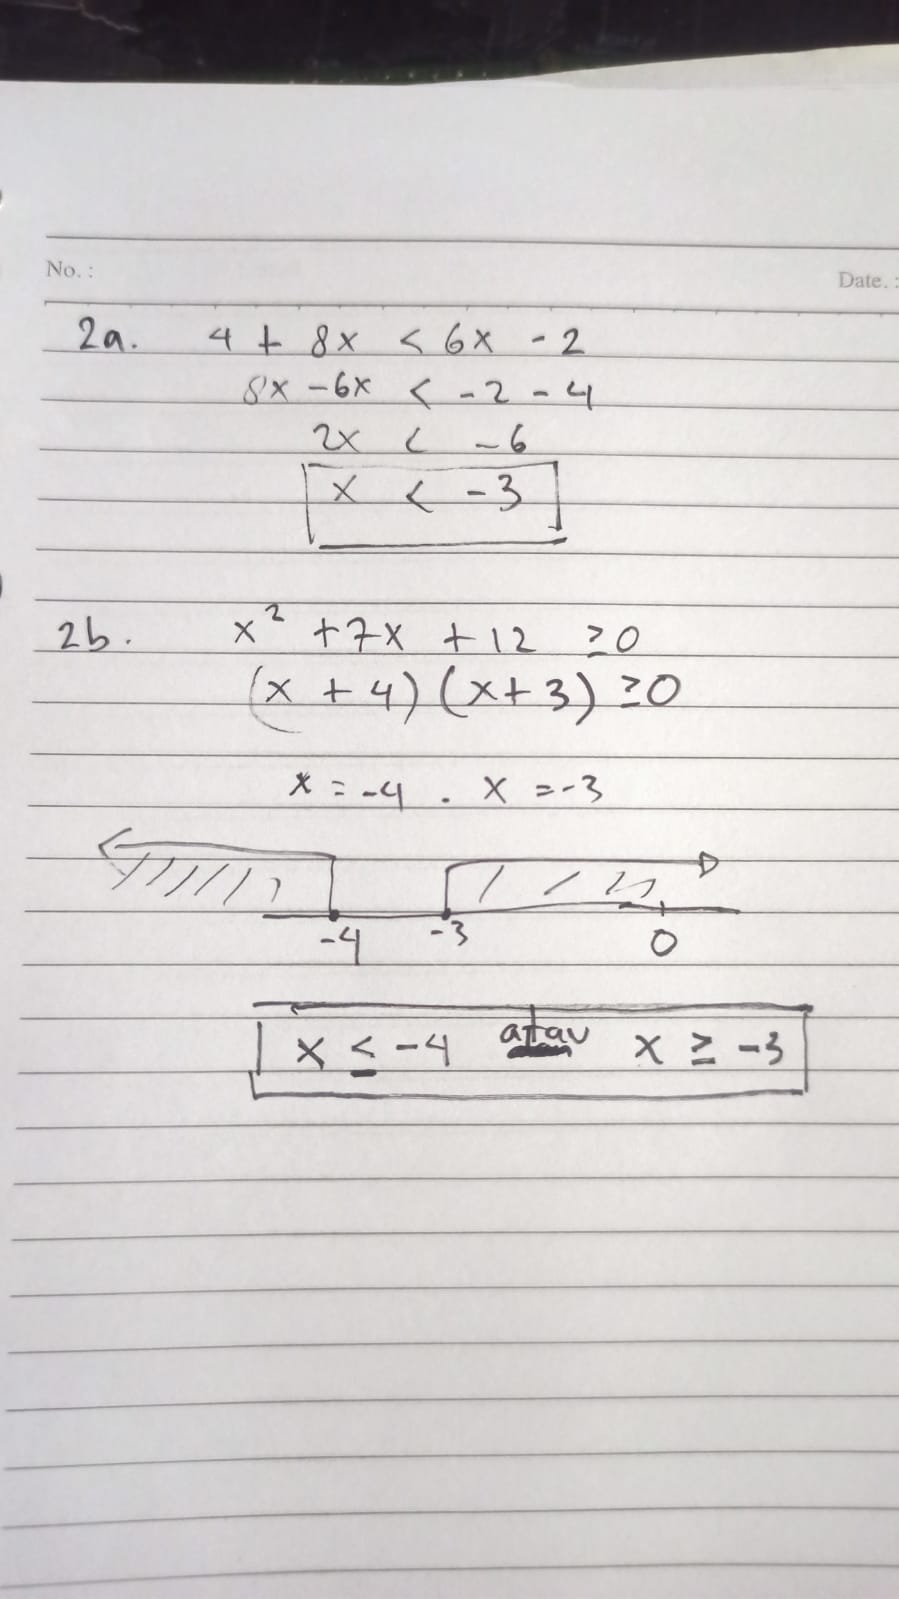 No. :
Date. :
2a. 4 + 8x < 6x - 2
8x - 6x < -2 - 4
2x < -6
x < -3
2b. x² + 7x + 12 ≥ 0
(x + 4) (x + 3) ≥ 0
x = -4 . x = -3
-4 -3 0
x ≤ -4 atau x ≥ -3